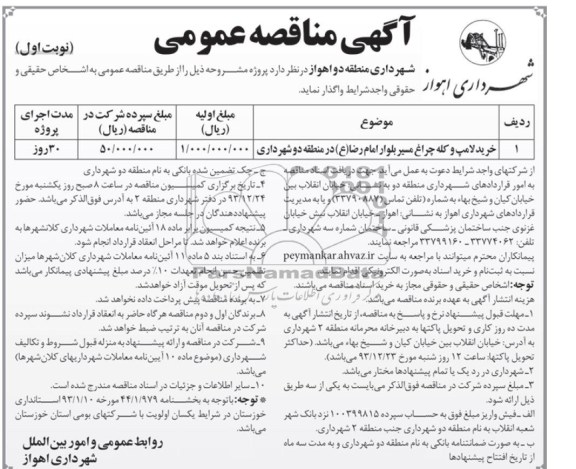 آگهی مناقصه عمومی
(نوبت اول)
شهرداری اهواز
شهرداری منطقه دو اهواز در نظر دارد پروژه مشروحه ذیل را از طریق مناقصه عمومی به اشخاص حقیقی و
حقوقی واجد شرایط واگذار نماید.
ردیف موضوع مبلغ اولیه (ریال) مبلغ سپرده شرکت در مناقصه (ریال) مدت اجرای پروژه
۱ خرید لامپ و کله چراغ مسیر بلوار امام رضا(ع) در منطقه دو شهرداری ۱/۰۰۰/۰۰۰/۰۰۰ ۵۰/۰۰۰/۰۰۰ ۳۰روز
از شرکتهای واجد شرایط دعوت به عمل می آید جهت دریافت اسناد مناقصه
به امور قراردادهای شهرداری منطقه دو به نشانی: خیابان انقلاب بین
خیابان کیان و شیخ بهاء به شماره (تلفن تماس ۳۳۷۹۰۸۸۷) و یا به مدیریت
قراردادهای شهرداری اهواز به نشانی: اهواز-خیابان انقلاب نبش خیابان
غزنوی جنب ساختمان پزشکی قانونی - ساختمان شماره سه شهرداری -
تلفن: ۳۳۷۷۴۰۶۲- ۳۳۷۹۹۱۶۰ مراجعه نمایند.
پیمانکاران محترم میتوانند با مراجعه به سایت peymankar.ahvaz.ir
نسبت به ثبت نام و خرید اسناد به صورت الکترونیکی اقدام نمایند.
توجه: اشخاص حقیقی و حقوقی مجاز به خرید اسناد مناقصه می باشند.
هزینه انتشار آگهی به عهده برنده مناقصه می باشد.
۱-مهلت قبول پیشنهاد نرخ و پاسخ به مناقصه، از تاریخ انتشار آگهی به
مدت ده روز کاری و تحویل پاکتها به دبیرخانه محرمانه منطقه ۲ شهرداری
به آدرس: خیابان انقلاب بین خیابان کیان و شیخ بهاء می باشد. (حداکثر
تحویل پاکتها، ساعت ۱۲ روز شنبه مورخ ۹۳/۱۲/۲۳ می باشد).
۲-شهرداری در رد یک یا تمام پیشنهادها مختار می باشد.
۳-مبلغ سپرده شرکت در مناقصه فوق الذکر می بایست به یکی از سه طریق
ذیل ارائه شود.
الف-فیش واریز مبلغ فوق به حساب سپرده ۱۰۰۳۹۹۸۱۵ نزد بانک شهر
شعبه انقلاب به نام منطقه دو شهرداری جنب منطقه ۲ شهرداری.
ب - به صورت ضمانتنامه بانکی به نام منطقه دو شهرداری و به مدت سه ماه
از تاریخ افتتاح پیشنهادها
ج-چک تضمین شده بانکی به نام منطقه دو شهرداری
۴-تاریخ برگزاری کمیسیون مناقصه در ساعت ۸ صبح روز یکشنبه مورخ
۹۳/۱۲/۲۴ در دفتر شهرداری منطقه ۲ به آدرس فوق الذکر می باشد. حضور
پیشنهاددهندگان در جلسه مجاز می باشد.
۵-نتیجه کمیسیون برابر ماده ۱۸ آئین نامه معاملات شهرداری کلانشهرها به
برنده اعلام خواهد شد. تا مراحل انعقاد قرارداد انجام شود.
۶-به استناد بند ۵ ماده ۱۱ آئین نامه معاملات شهرداری کلان شهرها میزان
تضمین حسن انجام تعهدات ۱۰٪ درصد مبلغ پیشنهادی پیمانکار می باشد
که پس از تحویل موقت آزاد خواهد شد.
۷-به برنده مناقصه پیش پرداخت داده نخواهد شد.
۸-برندگان اول و دوم مناقصه هرگاه حاضر به انعقاد قرارداد نشوند سپرده
شرکت در مناقصه آنان به ترتیب ضبط خواهد شد.
۹-شرکت در مناقصه و ارائه پیشنهاد به منزله قبول شروط و تکالیف
شهرداری (موضوع ماده ۱۰ آیین نامه معاملات شهرداریهای کلان شهرها)
می باشد.
۱۰-سایر اطلاعات و جزئیات در اسناد مناقصه مندرج شده است.
* توجه: با توجه به بخشنامه ۴۴/۱/۹۷۹ مورخه ۹۳/۱/۱۰ استانداری
خوزستان در شرایط یکسان اولویت با شرکتهای بومی استان خوزستان
می باشد.
روابط عمومی و امور بین الملل
شهرداری اهواز
ParsNamadData